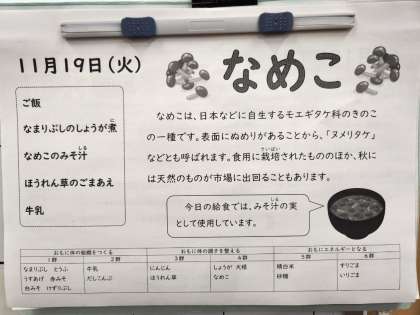 11月19日(火)
なめこ
ご飯
なまりぶしのしょうが煮
なめこのみそ汁
ほうれん草のごまあえ
牛乳
なめこは、日本などに自生するモエギタケ科のきのこ
の一種です。表面にぬめりがあることから、「ヌメリタケ」
などとも呼ばれます。食用に栽培されたもののほか、秋に
は天然のものが市場に出回ることもあります。
今日の給食では、みそ汁の実
として使用しています。
おもに体の組織をつくる おもに体の調子を整える おもにエネルギーとなる
1群 2群 3群 4群 5群 6群
なまりぶし とうふ 牛乳 にんじん しょうが 大根 精白米 すりごま
うすあげ 赤みそ だしこんぶ ほうれん草 なめこ 砂糖 いりごま
白みそ けずりぶし